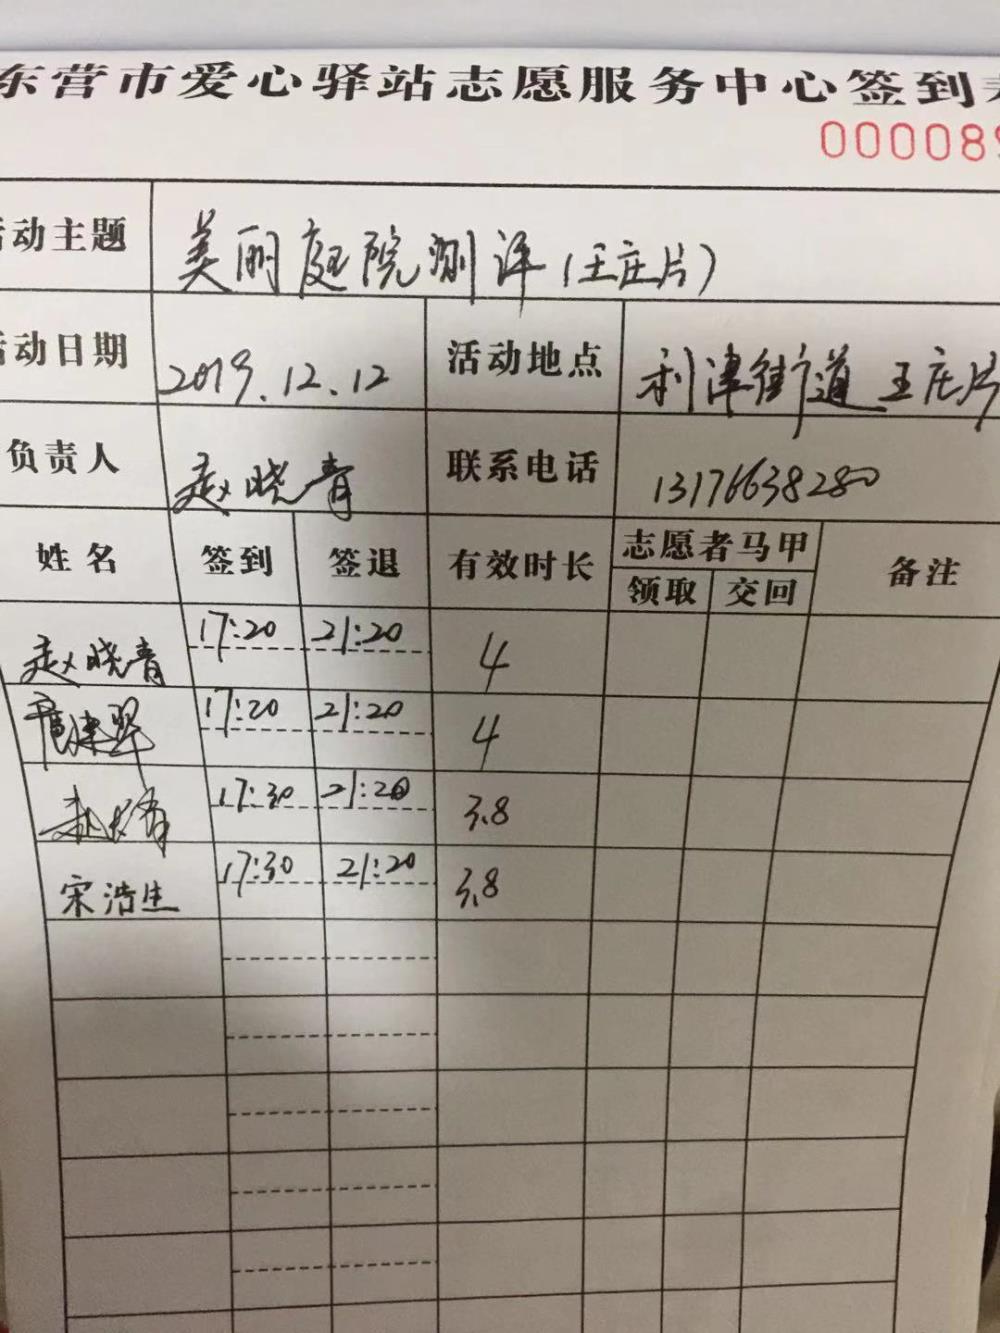 东营市爱心驿站志愿服务中心签到
000089
动主题 美丽庭院测评(王庄片)
动日期 2019.12.12 活动地点 利津街道王庄片
负责人 赵晓青 联系电话 13176638280
姓名 签到 签退 有效时长 志愿者马甲 备注
领取 交回
赵晓青 17:20 21:20 4
17:20 21:20 4
赵 17:30 21:20 3.8
宋浩生 17:30 21:20 3.8